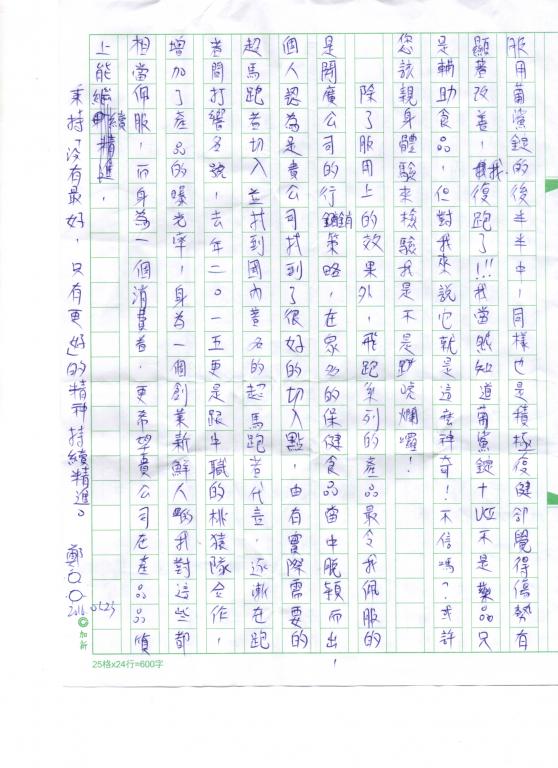 服用葡眾鋌的後半年中，同樣也是積極復健卻覺得傷勢有
顯著改善，我復跑了!!!我當然知道葡眾鋌+UCII不是藥品只
是輔助食品，但對我來說它就是這麼神奇!不信嗎?或許
您該親身體驗來檢驗我是不是在唬爛囉!
除了服用上的效果外，飛跑系列的產品最令我佩服的
是開廣公司的行銷策略，在眾多的保健食品當中脫穎而出，
個人認為是貴公司找到了很好的切入點，由有實際需要的
超馬跑者切入並找到國內著名的超馬跑者代言，逐漸在跑
者間打響名號，去年二〇一五更是跟中職的桃猿隊合作，
增加了產品的曝光率，身為一個創業新鮮人的我對這些都
相當佩服，而身為一個消費者，更希望貴公司在產品品質
上能繼續精進，
秉持「沒有最好，只有更好」的精神持續精進。 鄭〇〇 2016 0523
25格x24行=600字
加新